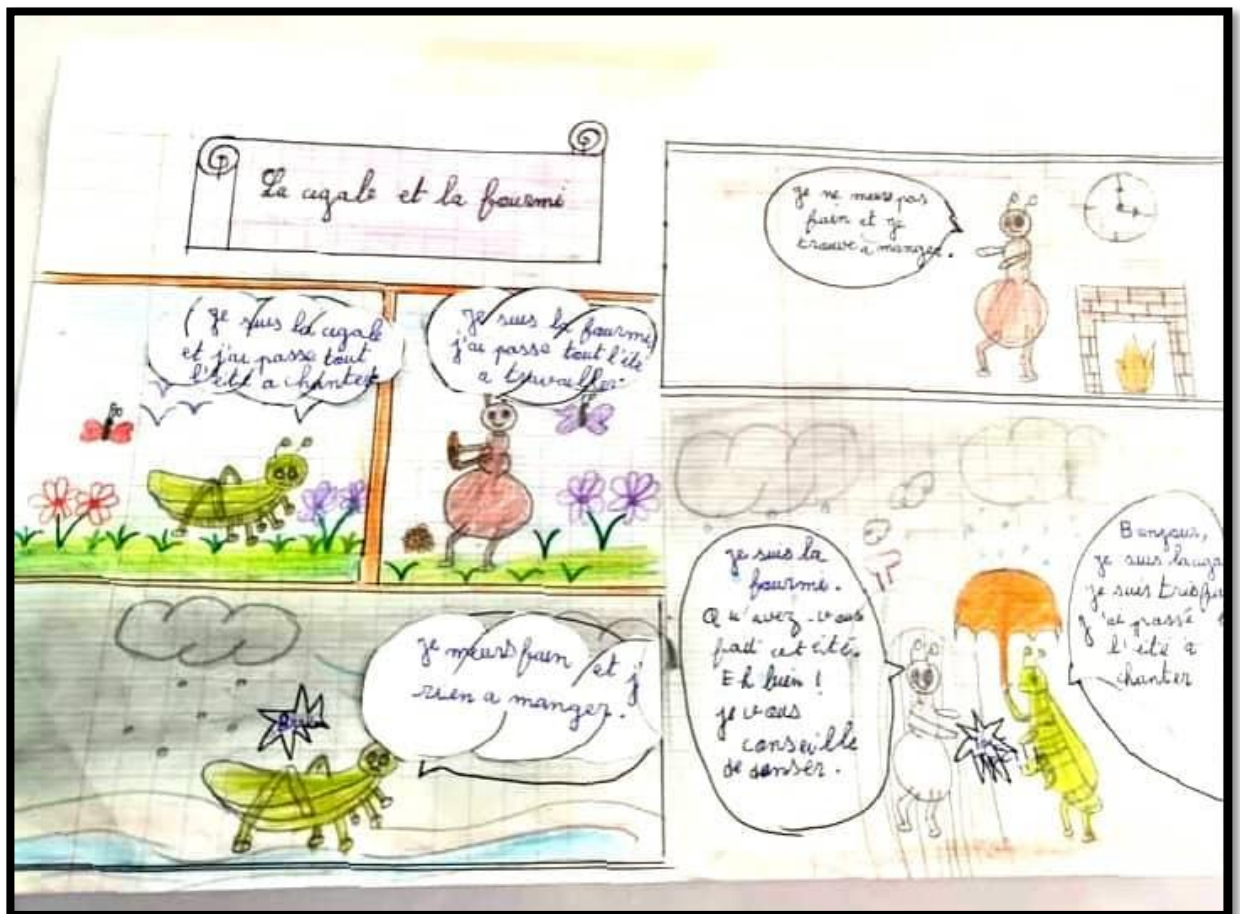 La cigale et la fourmi
je suis la cigale
et j'ai passe tout
l'été a chanter
je suis la fourmi
j'ai passe tout l'été
a travailler
je meurs faim et j'
rien a manger.
je ne meure pas
faim et je
trouve à manger.
je suis la
fourmi.
Qu'avez-vous
fait cet été.
Eh bien !
je vous
conseille
de danser.
Bonjour,
je suis la ciga
je suis
j'ai passé
l'été à
chanter